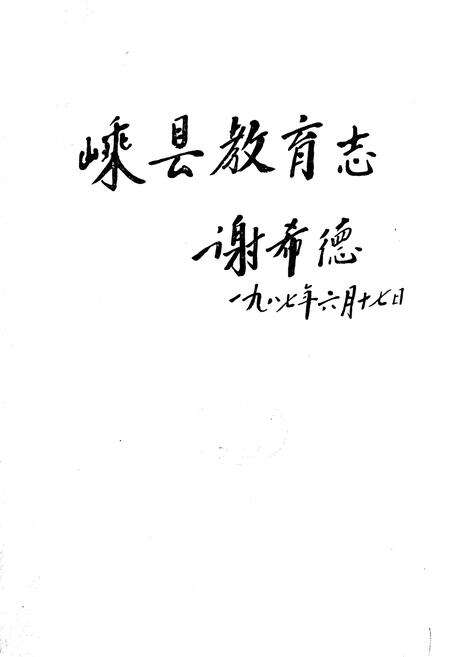 嵊县教育志
谢希德
一九八七年六月十七日